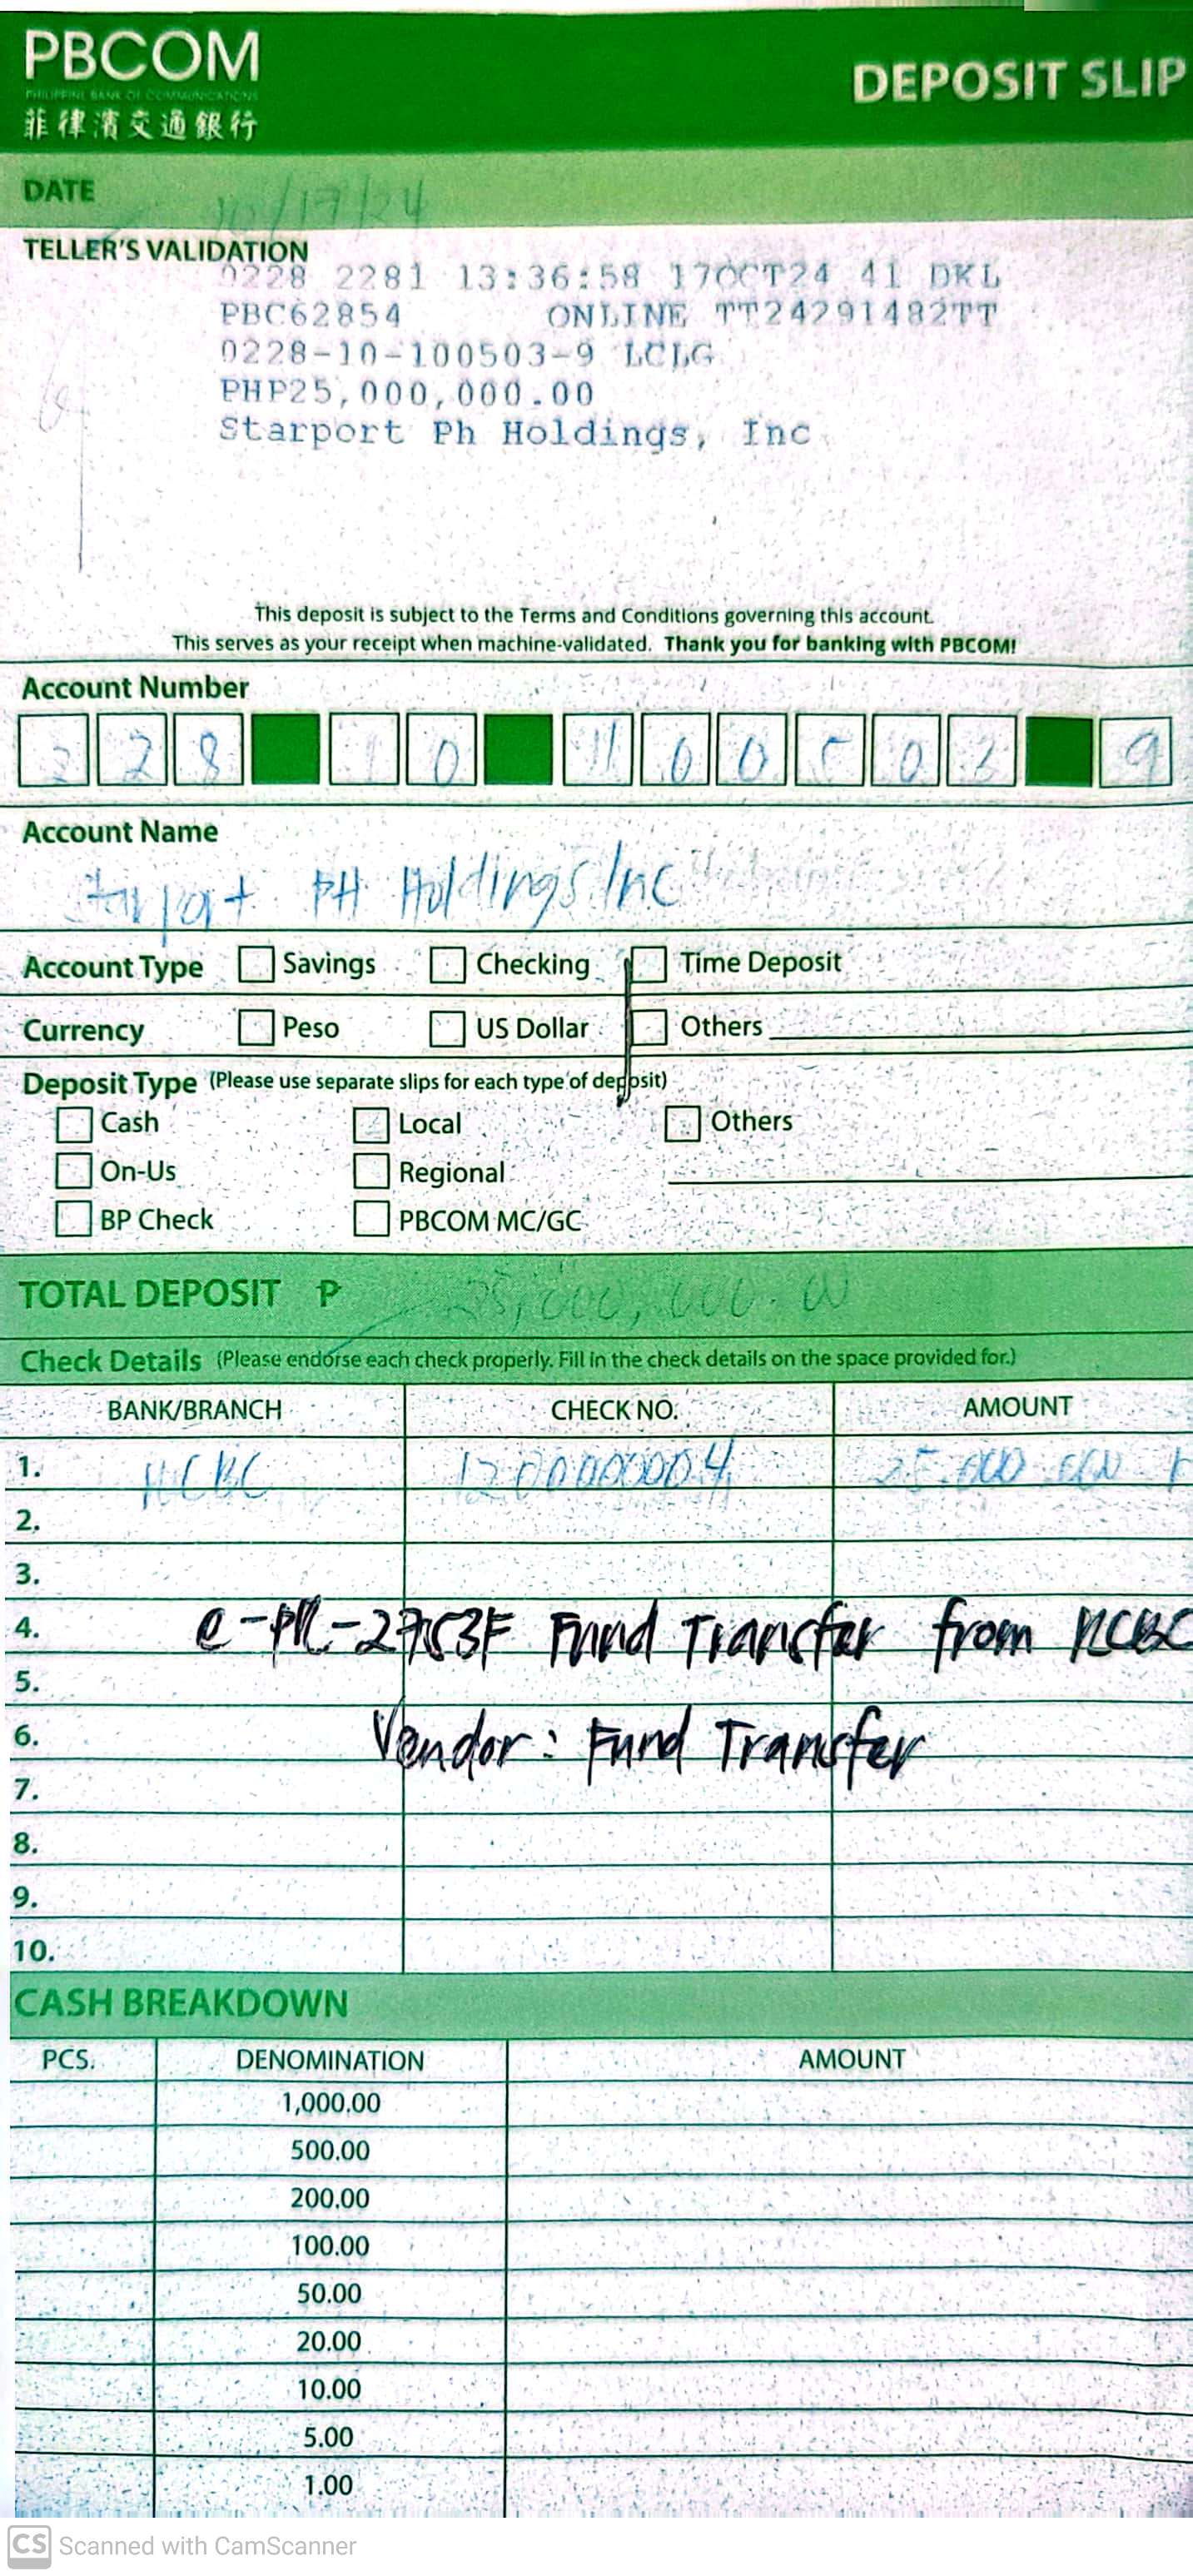 PBCOM
PHILIPPINE BANK OF COMMUNICATIONS
菲律濱交通銀行
DEPOSIT SLIP
DATE 10/17/24
TELLER'S VALIDATION
0228 2281 13:36:58 17OCT24 41 DKL
PBC62854 ONLINE TT24291482TT
0228-10-100503-9 LCLG
PHP25,000,000.00
Starport Ph Holdings, Inc
This deposit is subject to the Terms and Conditions governing this account.
This serves as your receipt when machine-validated. Thank you for banking with PBCOM!
Account Number
2 2 8 1 0 1 0 0 5 0 3 9
Account Name
Starport PH Holdings Inc
Account Type Savings Checking Time Deposit
Currency Peso US Dollar Others
Deposit Type (Please use separate slips for each type of deposit)
Cash Local Others
On-Us Regional
BP Check PBCOM MC/GC
TOTAL DEPOSIT ₱ 25,000,000.00
Check Details (Please endorse each check properly. Fill in the check details on the space provided for.)
BANK/BRANCH CHECK NO. AMOUNT
1. RCBC 25,000,000
2.
3.
4. Fund Transfer from RCBC
5.
6. Vendor: Fund Transfer
7.
8.
9.
10.
CASH BREAKDOWN
PCS. DENOMINATION AMOUNT
1,000.00
500.00
200.00
100.00
50.00
20.00
10.00
5.00
1.00
CS Scanned with CamScanner